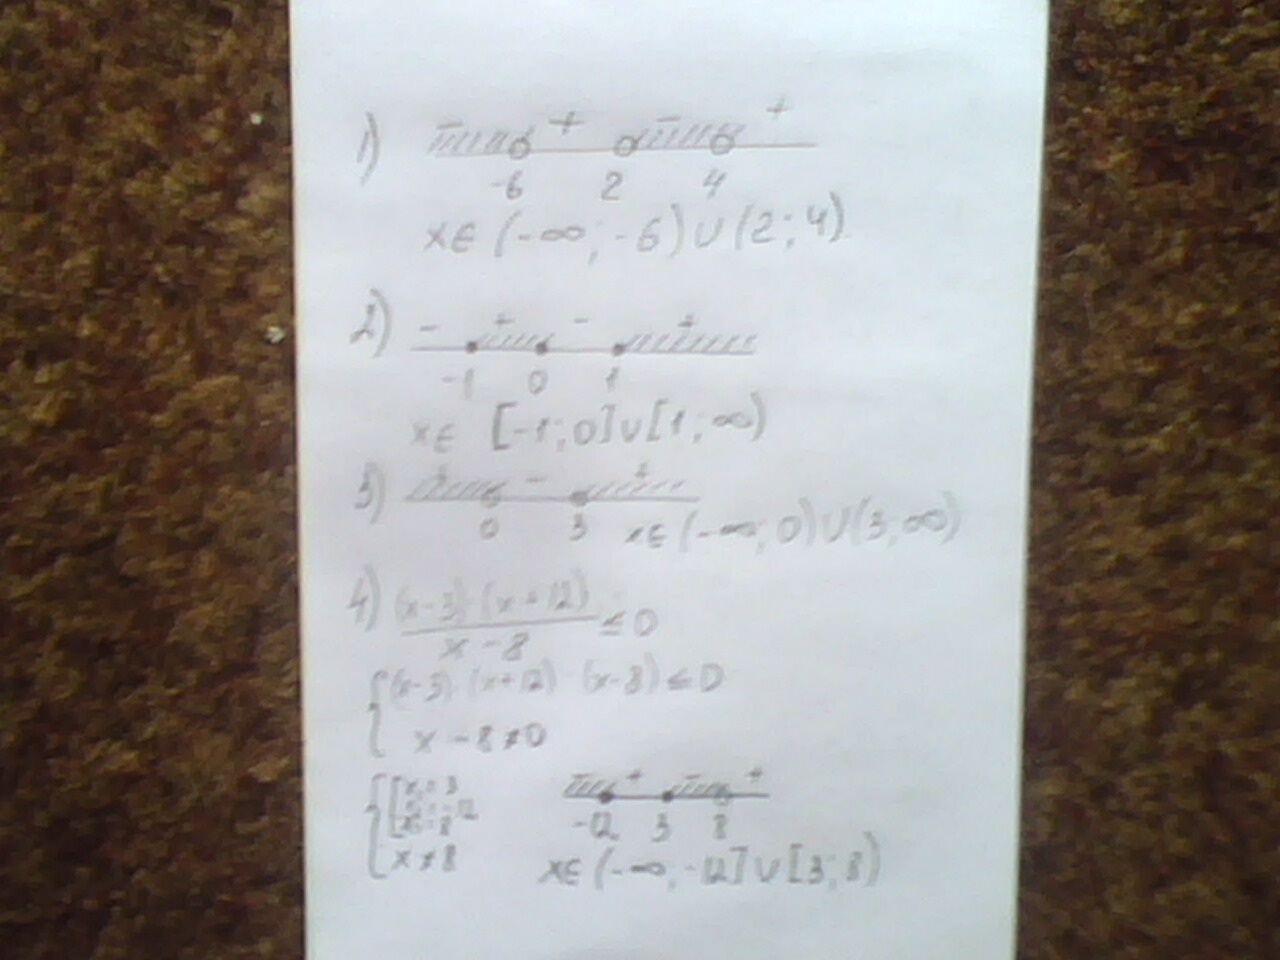 1) - + - +
-6 2 4
x∈ (-∞; -6) ∪ (2; 4)
2) - + - +
-1 0 1
x∈ [-1; 0] ∪ [1; ∞)
3) + - +
0 3 x∈ (-∞; 0) ∪ (3; ∞)
4) (x-3) · (x+12)
x - 8 ≤ 0
{ (x-3) · (x+12) · (x-8) ≤ 0
x - 8 ≠ 0
x = 3 - + - +
-12 3 8
x ≠ 8 x∈ (-∞; -12] ∪ [3; 8)